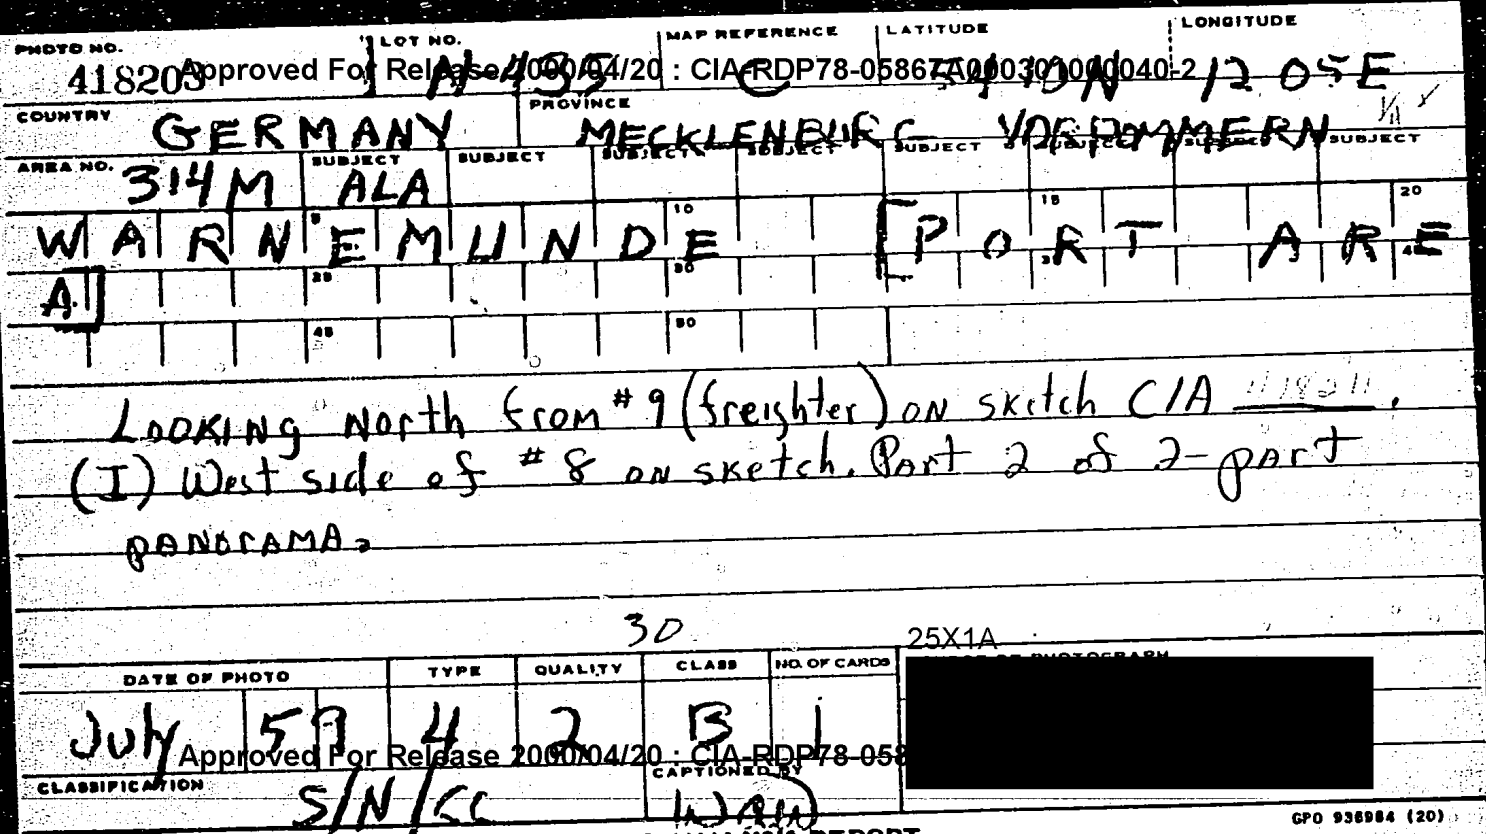 PHOTO NO. LOT NO. MAP REFERENCE LATITUDE LONGITUDE
418203 N-435 C 54 10N 12 05E
Approved For Release 2000/04/20 : CIA-RDP78-05867A000301000040-2
COUNTRY PROVINCE
GERMANY MECKLENBURG VORPOMMERN
AREA NO. SUBJECT SUBJECT SUBJECT SUBJECT SUBJECT SUBJECT SUBJECT SUBJECT
314M ALA
5 10 15 20
WARNEMUNDE [PORT AREA]
25 30 45 50
Looking North from #9 (freighter) on sketch CIA
(I) West side of #8 on sketch. Part 2 of 2-part
panorama.
30
25X1A
DATE OF PHOTO TYPE QUALITY CLASS NO. OF CARDS
July 59 4 2 B 1
Approved For Release 2000/04/20 : CIA-RDP78-058
CLASSIFICATION CAPTIONED BY
S/N/CC
GPO 936984 (20)
REPORT